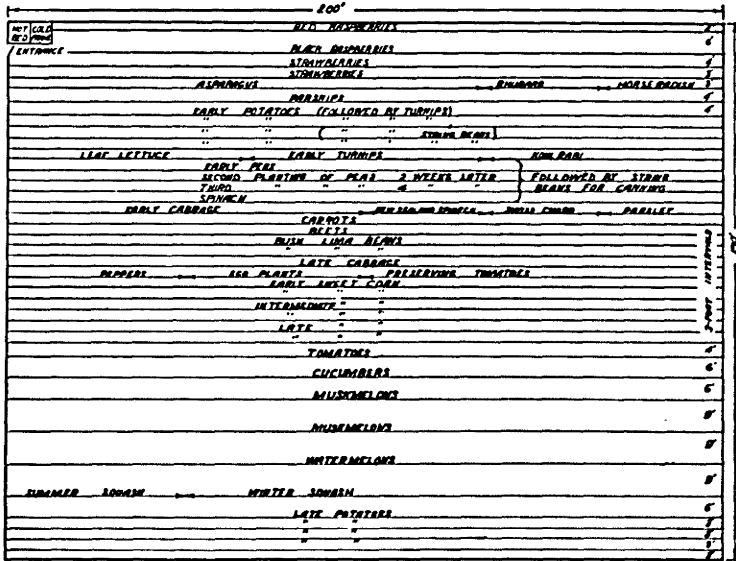 200'
HOT COLD RED RASPBERRIES 2'
BED FRAME 6'
ENTRANCE BLACK RASPBERRIES
STRAWBERRIES 4'
STRAWBERRIES 3'
ASPARAGUS RHUBARB HORSERADISH 3'
PARSNIPS 4'
EARLY POTATOES (FOLLOWED BY TURNIPS) 4'
" " " " "
" " ( " " STRING BEANS)
" " " "
LEAF LETTUCE EARLY TURNIPS KOHLRABI
EARLY PEAS
SECOND PLANTING OF PEAS 2 WEEKS LATER FOLLOWED BY STRING
THIRD " " " 4 " " BEANS FOR CANNING
SPINACH
EARLY CABBAGE NEW ZEALAND SPINACH SWISS CHARD PARSLEY
CARROTS
BEETS
BUSH LIMA BEANS
" " "
LATE CABBAGE
PEPPERS EGG PLANTS PRESERVING TOMATOES
EARLY SWEET CORN
" " "
INTERMEDIATE " "
" " "
LATE " "
" " "
3-FOOT INTERVALS
TOMATOES 4'
CUCUMBERS 6'
MUSKMELONS 6'
8'
MUSKMELONS
8'
WATERMELONS
8'
SUMMER SQUASH WINTER SQUASH
LATE POTATOES 6'
" " 3'
" " 3'
3'
2'